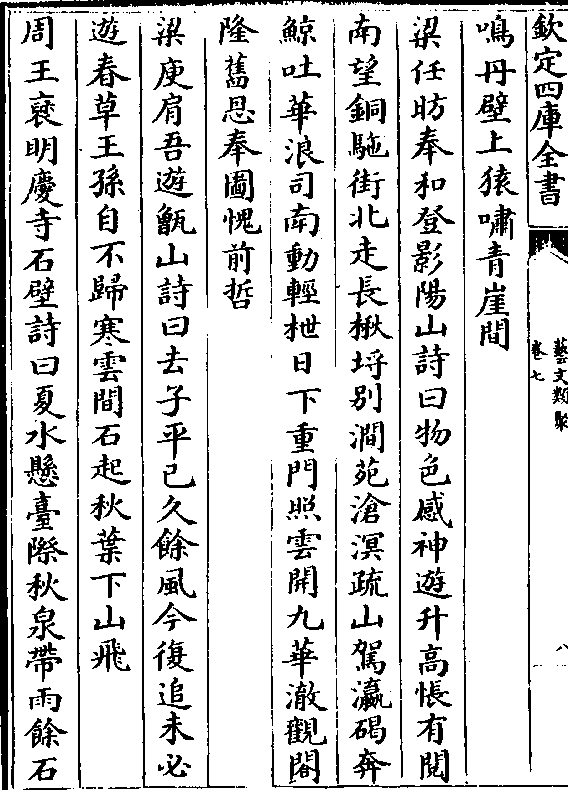 欽定四庫全書
藝文類聚
卷七
八
鳴丹壁上猿嘯青崖間
梁任昉奉和登影陽山詩曰物色感神遊升高悵有閱
南望銅駞街北走長楸埒别澗苑滄溟疏山駕瀛碣奔
鯨吐華浪司南動輕枻日下重門照雲開九華澈觀閣
隆舊恩奉圖愧前哲
梁庾肩吾遊甑山詩曰去子平已久餘風今復追未必
遊春草王孫自不歸寒雲間石起秋葉下山飛
周王襃明慶寺石壁詩曰夏水懸臺際秋泉帶雨餘石